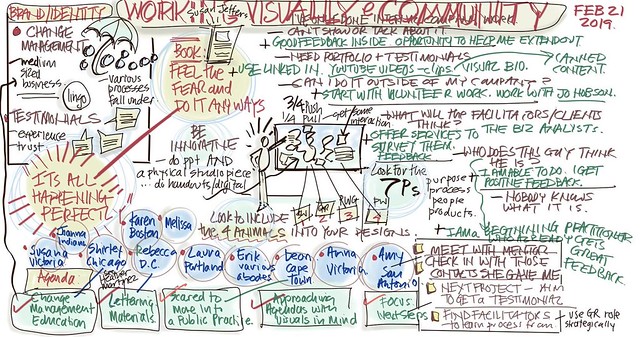 BRAND/IDENTITY
WORKING VISUALLY e COMMUNITY
FEB 21
2019.
CHANGE
MANAGEMENT
medium
sized
business
lingo
various
processes
fall under
TESTIMONIALS
experience
trust
Susan Jeffers
BOOK
FEEL the
FEAR and
DO IT ANYWAYS
IT'S ALL
HAPPENING
PERFECTLY
BE
INNOVATIVE
- do ppt AND
a physical studio piece
... do handouts/digital
3/4 Push
1/4 PULL
get some
interaction
CAN'T SHOW OR TALK ABOUT IT.
+ GOOD FEEDBACK INSIDE OPPORTUNITY TO HELP ME EXTEND OUT
- NEED PORTFOLIO + TESTIMONIALS
+ USE LINKED IN. YOUTUBE VIDEOS - CLIPS VISUAL BIO.
CANNED
CONTENT.
- CAN I DO IT OUTSIDE OF MY COMPANY?
+ START WITH VOLUNTEER WORK. WORK WITH JO HOBSON.
- WHAT WILL the FACILITATORS/CLIENTS
THINK?
+ OFFER SERVICES TO THE BIZ ANALYSTS.
SURVEY THEM.
FEEDBACK
- WHO DOES THIS GUY THINK
HE IS?
I AM ABLE TO DO. I GET
POSITIVE FEEDBACK.
- NOBODY KNOWS
WHAT IT IS.
+ I AM A BEGINNING PRACTITIONER
GREAT
FEEDBACK.
Look for the
7Ps
purpose +
process
people
products.
LOOK to INCLUDE
the 4 ANIMALS INTO YOUR DESIGNS.
Joanna
Indiana
Karen
Boston
Melissa
Susana
Victoria
Shirley
Chicago
Rebecca
D.C.
Laura
Portland
Erik
various
abodes
Deon
Cape
Town
Anna
Victoria
Amy
San
Antonio
Agenda
Change
Management
Education
Lettering
Materials
Scared to
Move Into
a Public Practice
Approaching
Agendas with
Visuals in Mind
Focus
Next Steps
MEET WITH MENTOR
CHECK IN WITH THOSE
CONTACTS SHE GAVE ME
NEXT PROJECT - AIM
TO GET A TESTIMONIAL
FIND FACILITATORS
to learn process from.
+ use GR role
strategically